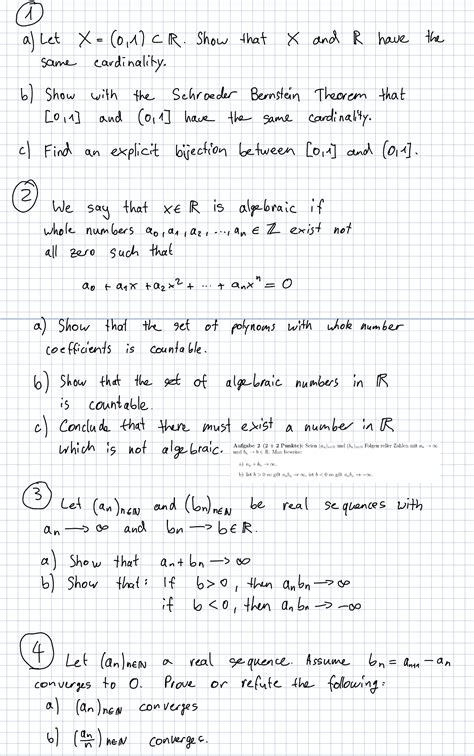 1
a) Let X = (0,1) ⊂ ℝ. Show that X and ℝ have the
same cardinality.
b) Show with the Schroeder Bernstein Theorem that
[0,1] and (0,1] have the same cardinality.
c) Find an explicit bijection between [0,1] and (0,1].
2
We say that x ∈ ℝ is algebraic if
whole numbers a₀, a₁, a₂, ..., aₙ ∈ ℤ exist not
all zero such that
a₀ + a₁x + a₂x² + ... + aₙxⁿ = 0
a) Show that the set of polynoms with whole number
coefficients is countable.
b) Show that the set of algebraic numbers in ℝ
is countable.
c) Conclude that there must exist a number in ℝ
which is not algebraic.
Aufgabe 2 (2 + 2 Punkte): Seien (aₙ)ₙ∈ℕ und (bₙ)ₙ∈ℕ Folgen reller Zahlen mit aₙ → ∞
und bₙ → b ∈ ℝ. Man beweise:
a) aₙ + bₙ → ∞.
b) Ist b > 0 so gilt aₙbₙ → ∞, ist b < 0 so gilt aₙbₙ → −∞.
3
Let (aₙ)ₙ∈ℕ and (bₙ)ₙ∈ℕ be real sequences with
aₙ → ∞ and bₙ → b ∈ ℝ.
a) Show that aₙ + bₙ → ∞
b) Show that: If b > 0, then aₙbₙ → ∞
if b < 0, then aₙbₙ → −∞
4
Let (aₙ)ₙ∈ℕ a real sequence. Assume bₙ = aₙ₊₁ − aₙ
converges to 0. Prove or refute the following:
a) (aₙ)ₙ∈ℕ converges
b) (aₙ/n)ₙ∈ℕ converges.